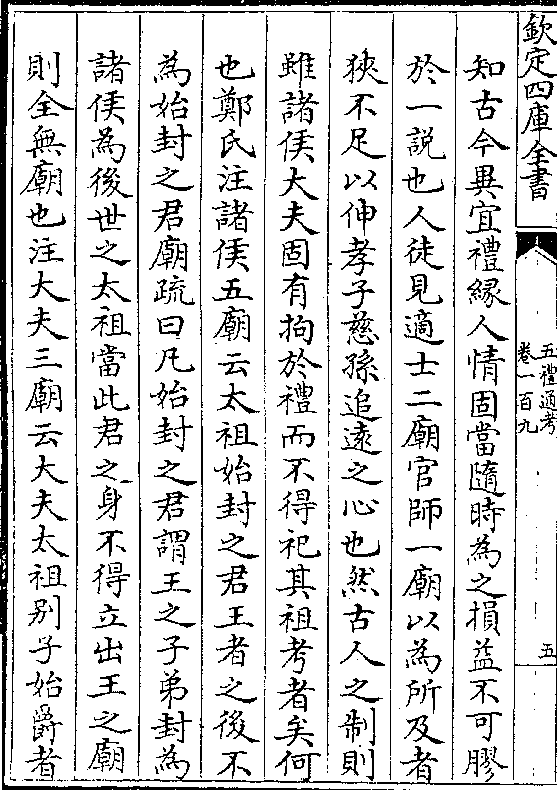 欽定四庫全書
五禮通考
卷一百九
五
知古今異宜禮緣人情固當隨時為之損益不可膠
於一説也人徒見適士二廟官師一廟以為所及者
狹不足以伸孝子慈孫追遠之心也然古人之制則
雖諸侯大夫固有拘於禮而不得祀其祖考者矣何
也鄭氏注諸侯五廟云太祖始封之君王者之後不
為始封之君廟疏曰凡始封之君謂王之子弟封為
諸侯為後世之太祖當此君之身不得立出王之廟
則全無廟也注大夫三廟云大夫太祖別子始爵者